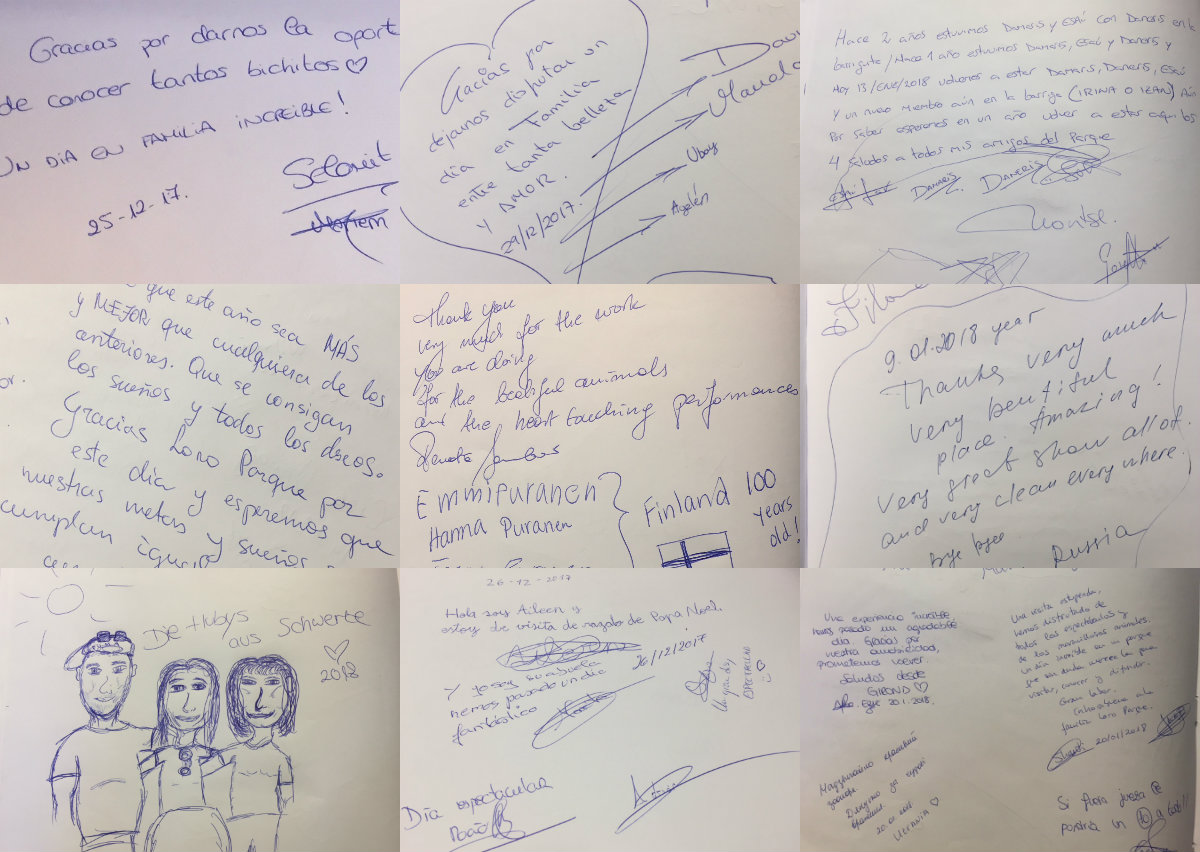 Gracias por darnos la oport
de conocer tantos bichitos ♡
UN DÍA EN FAMILIA INCREIBLE!
25-12-17.
Gracias por
dejarnos disfrutar un
día en Familia
entre tanta belleza
Y AMOR.
29/12/2017.
Davi
Manolo
Ubay
Ayelén
Hace 2 años estuvimos Damaris y Esaú con Daneris en la
barriguita / Hace 1 año estuvimos Damaris, Esaú y Daneris y
Hoy 13/ENE/2018 volvemos a estar Damaris, Daneris, Esaú
Y un nuevo miembro aún en la barriga (IRINA O IEAN) Aún
Por saber esperemos en un año volver a estar aquí los
4 Saludos a todos mis amigos del Parque
DAMARIS DANERIS
Montse.
que este año sea MÁS
y MEJOR que cualquiera de los
anteriores. Que se consigan
los sueños y todos los dseos.
Gracias Loro Parque por
este día y esperemos que
nuestras metas y sueños
cumplan
Thank you
very much for the work
you are doing
for the beatiful animals
and the heart touching performances
Renata
Emmi Puranen
Hanna Puranen
Finland 100
years
old!
9.01.2018 year
Thanks very much
very beutiful
place. Amazing!
Very great show all of.
and very clean everywhere.
bye byee
Russia
Die Hubys
aus Schwerte
♡
2018
26-12-2017
Hola soy Aileen y
estoy de visita de regalo de Papa Noel.
26/12/2017
Y yo soy su abuela
hemos pasado un día
fantástico
Día espectacular
Una experiencia increíble
hemos pasado un agradable
día Gracias por
vuestra amabilidad,
prometemos volver
Saludos desde
GIROND ♡
20.1.2018.
Una visita estupenda,
hemos disfrutado de
todos los espectáculos y
de los maravillosos animales.
Un día increíble en un parque
que sin duda merece la pena
visitar, conocer y difundir.
Gran labor.
Enhorabuena a la
familia Loro Parque.
20/01/2018
Надзвичайно красивий
зоопарк.
Дякуємо за чудові
враження.
20.01.2018
UKRAINIA ♡
Si fuera jueza @
pondría un 10 a todo!!